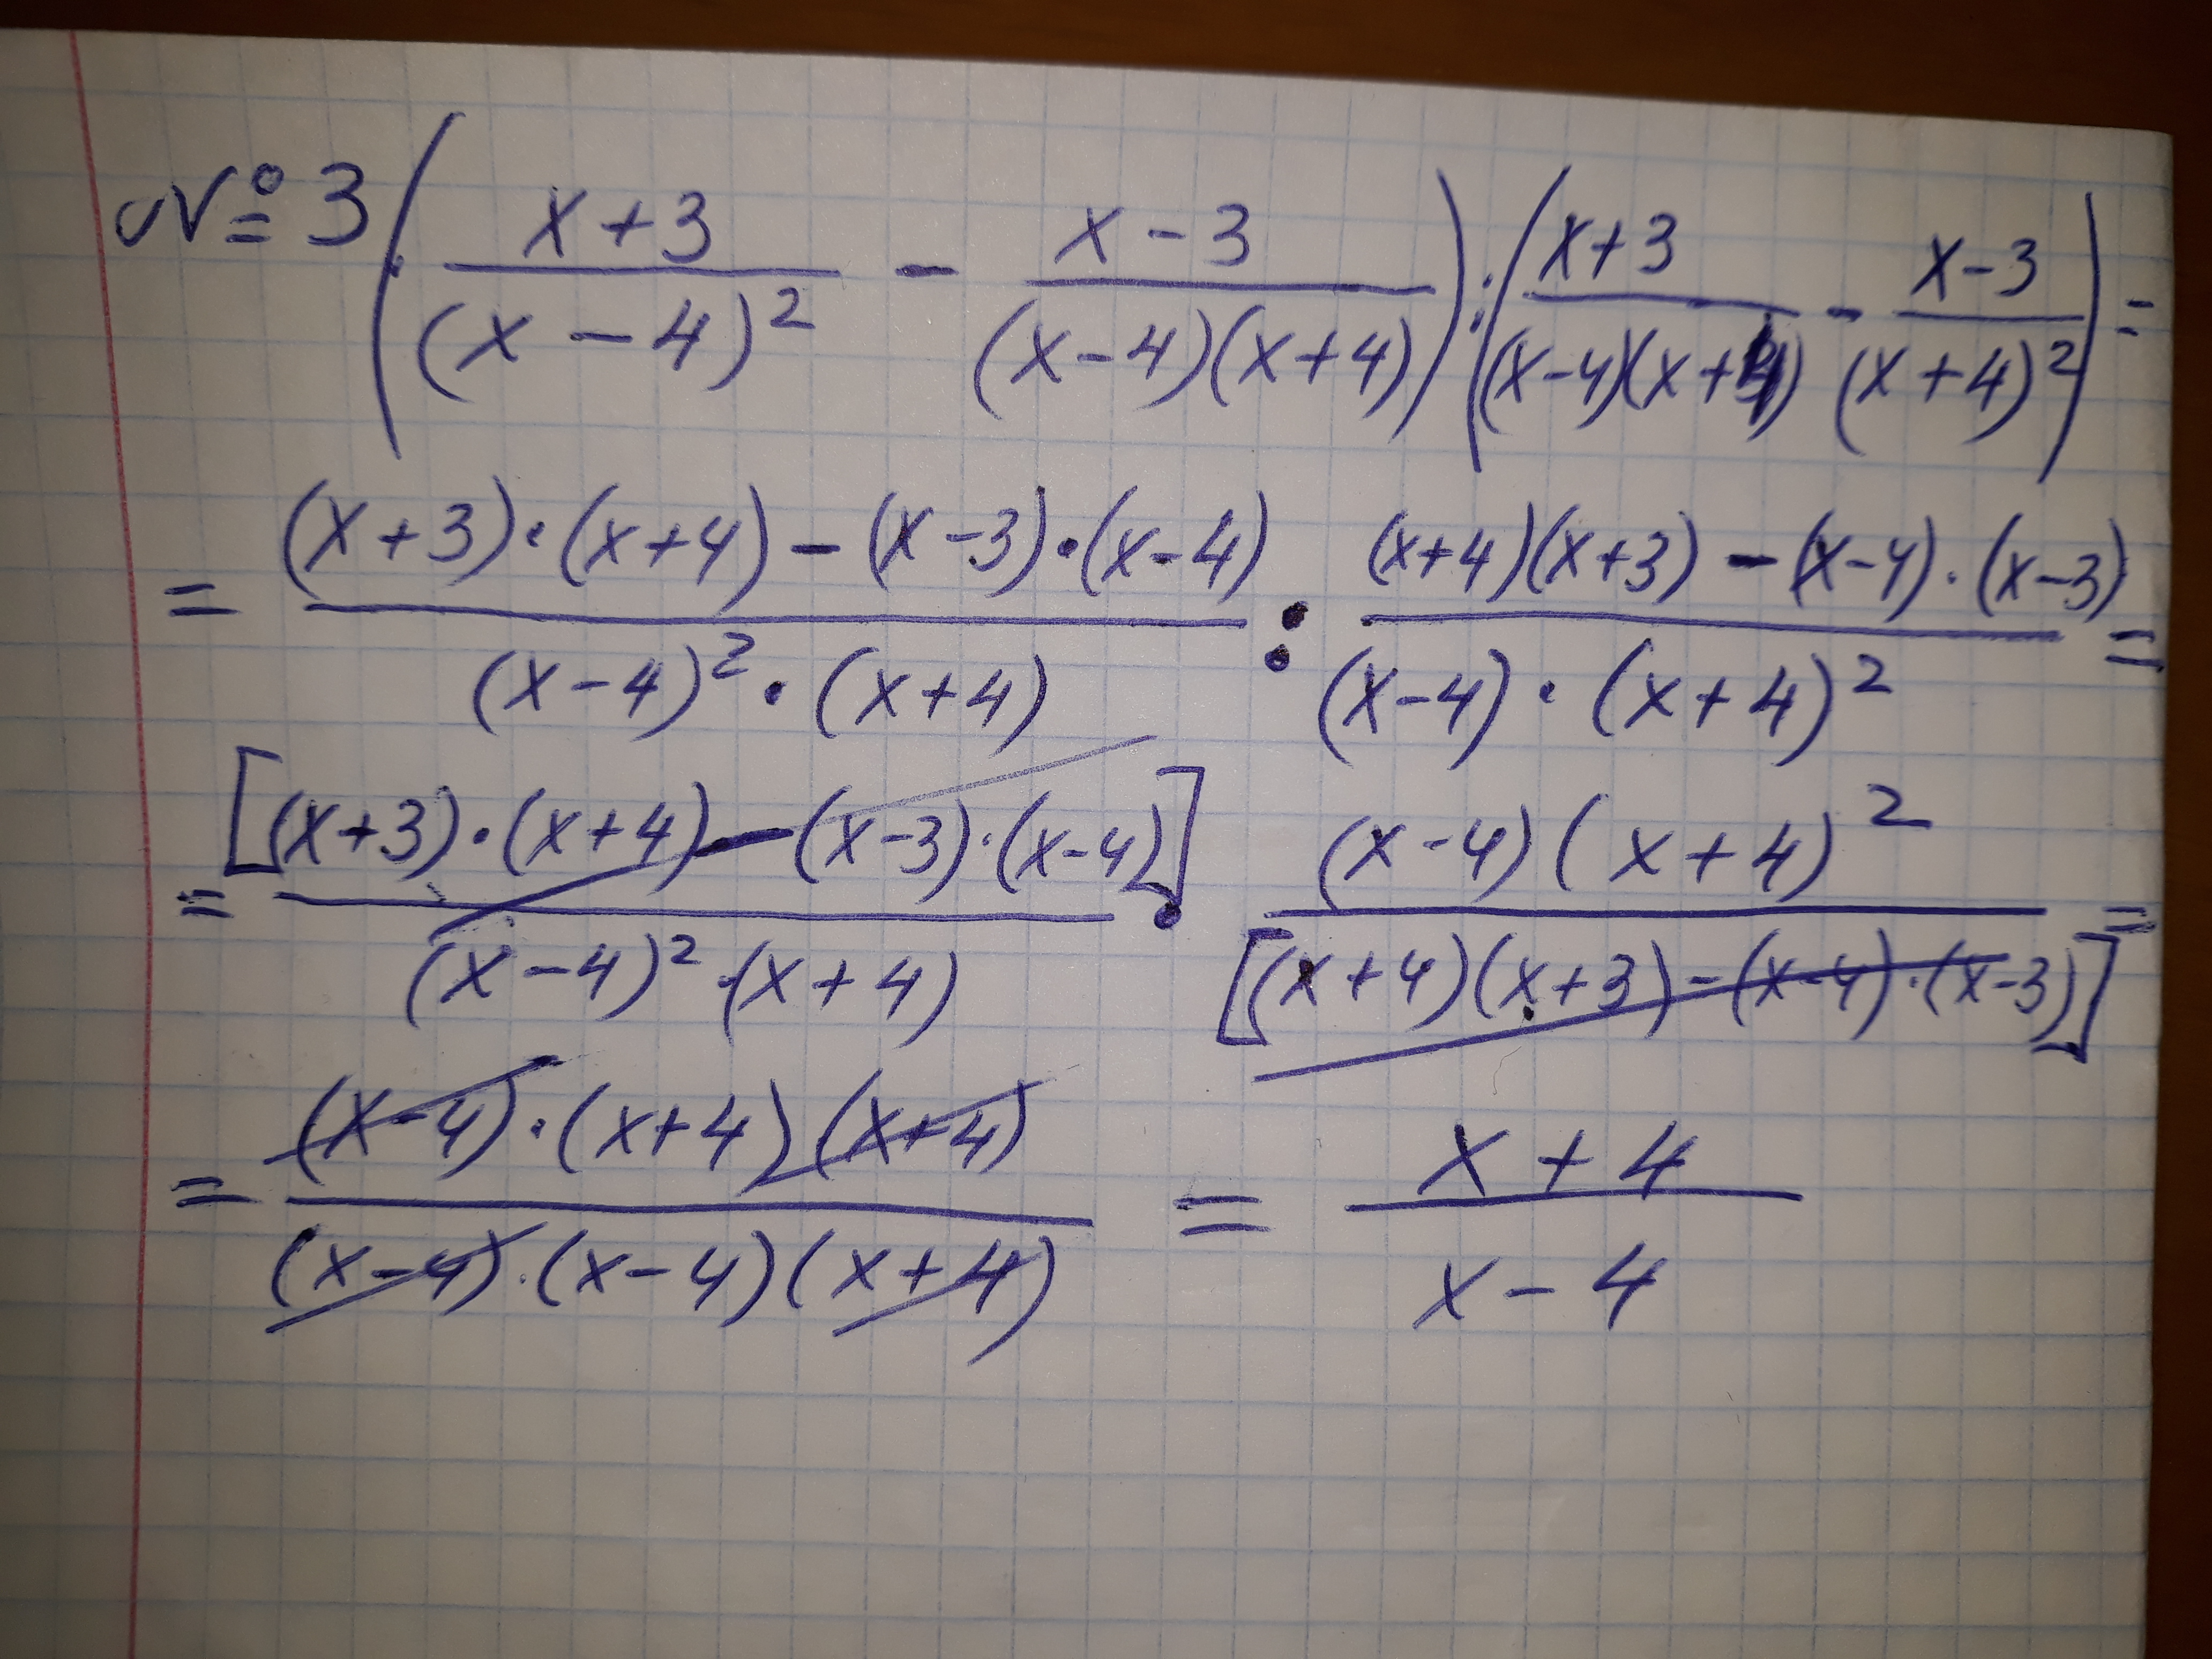 №3 ( (x+3)/(x-4)² - (x-3)/((x-4)(x+4)) ) : ( (x+3)/((x-4)(x+4)) - (x-3)/(x+4)² ) =
= ((x+3)·(x+4)-(x-3)·(x-4))/((x-4)²·(x+4)) : ((x+4)(x+3)-(x-4)·(x-3))/((x-4)·(x+4)²) =
= [(x+3)·(x+4)-(x-3)·(x-4)]/((x-4)²·(x+4)) · ((x-4)(x+4)²)/[(x+4)(x+3)-(x-4)·(x-3)] =
= ((x-4)·(x+4)(x+4))/((x-4)·(x-4)(x+4)) = (x+4)/(x-4)